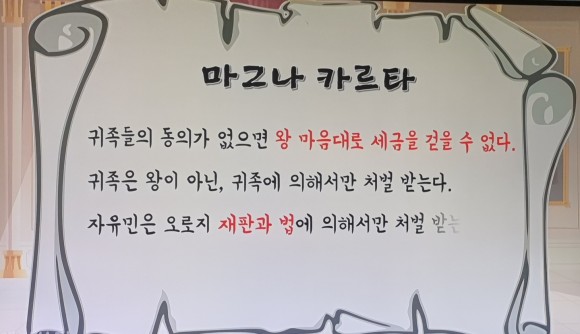 마그나 카르타
귀족들의 동의가 없으면 왕 마음대로 세금을 걷을 수 없다.
귀족은 왕이 아닌, 귀족에 의해서만 처벌 받는다.
자유민은 오로지 재판과 법에 의해서만 처벌 받는